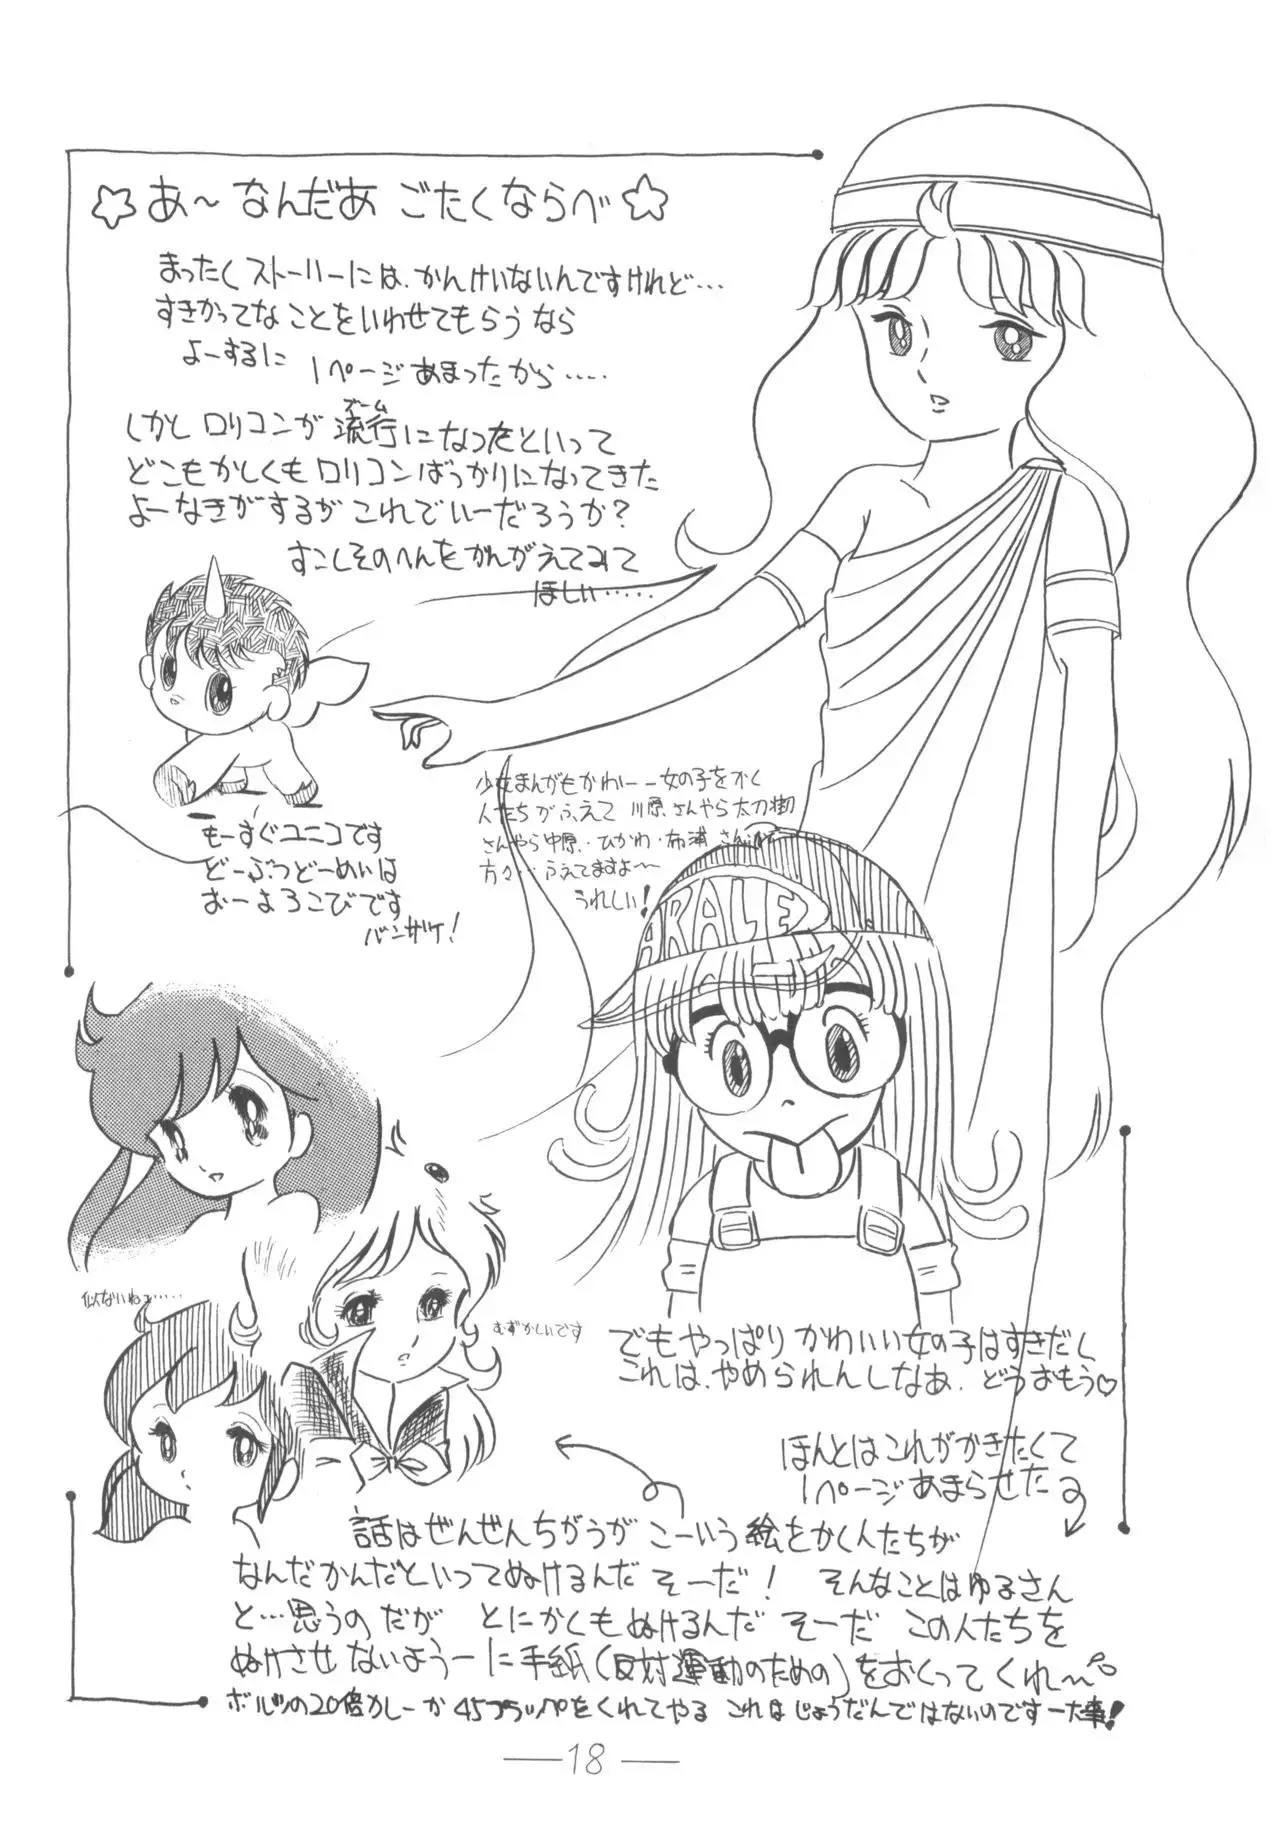 ☆ あ〜 なんだあ ごたくならべ ☆
まったくストーリーには、かんけいないんですけれど…
すきかってな ことをいわせてもらうなら
よーするに 1ページあまったから……
ズーム
しかし ロリコンが 流行になったといって
どこもかしくも ロリコンばっかりになってきた
よーなきがするが これでいーだろうか?
すこしそのへんを かんがえてみて
ほしい……
もーすぐユニコです
どーぶつどーめいは
おーよろこびです
バンザイ!
少女まんがもかわいー 女の子をかく
人たちがふえて 川原さんやら太刀掛
さんやら中原・ひかわ・布浦さん
方々…ふえてますよ〜
うれしい!
ARALE
似ないねェ……
むずかしいです
でも やっぱり かわいい女の子はすきだし
これは、やめられんしなあ、どうおもう♡
ほんとはこれがかきたくて
1ページあまらせた
話はぜんぜんちがうが こーいう絵をかく人たちが
なんだかんだといってぬけるんだ そーだ! そんなことはゆるさん
と…思うのだが とにかくもぬけるんだ そーだ この人たちを
ぬけさせないよーに手紙(反対運動のための)をおくってくれ〜
ボルツの20倍カレーか45フラッペをくれてやる これはじょうだんではないのですー大事!
— 18 —